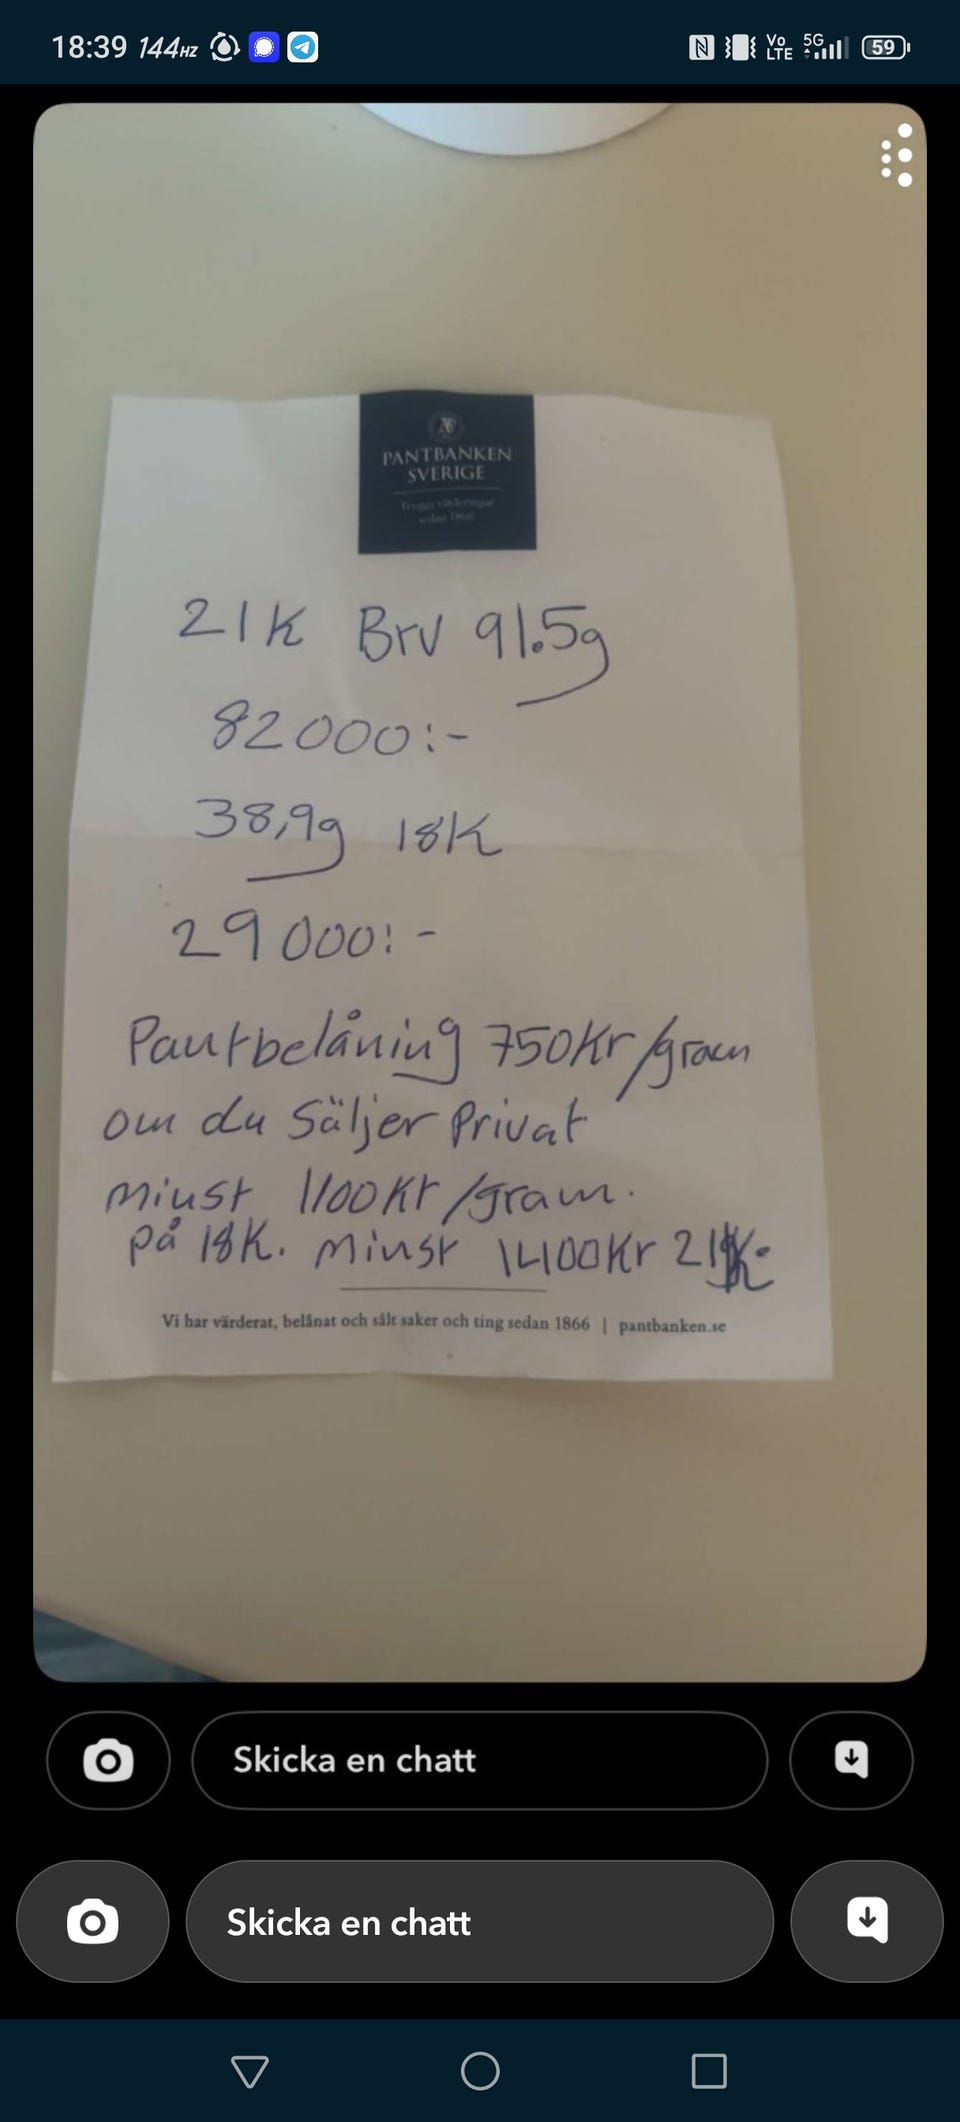 18:39 144HZ
Vo LTE 5G 59
PANTBANKEN
SVERIGE
Trygga värderingar
sedan 1866
21K Brv 91.5g
82000:-
38,9g 18K
29000:-
Pantbelåning 750Kr/gram
om du Säljer Privat
minst 1100Kr/gram.
på 18K. minst 1400Kr 21K.
Vi har värderat, belånat och sålt saker och ting sedan 1866 | pantbanken.se
Skicka en chatt
Skicka en chatt